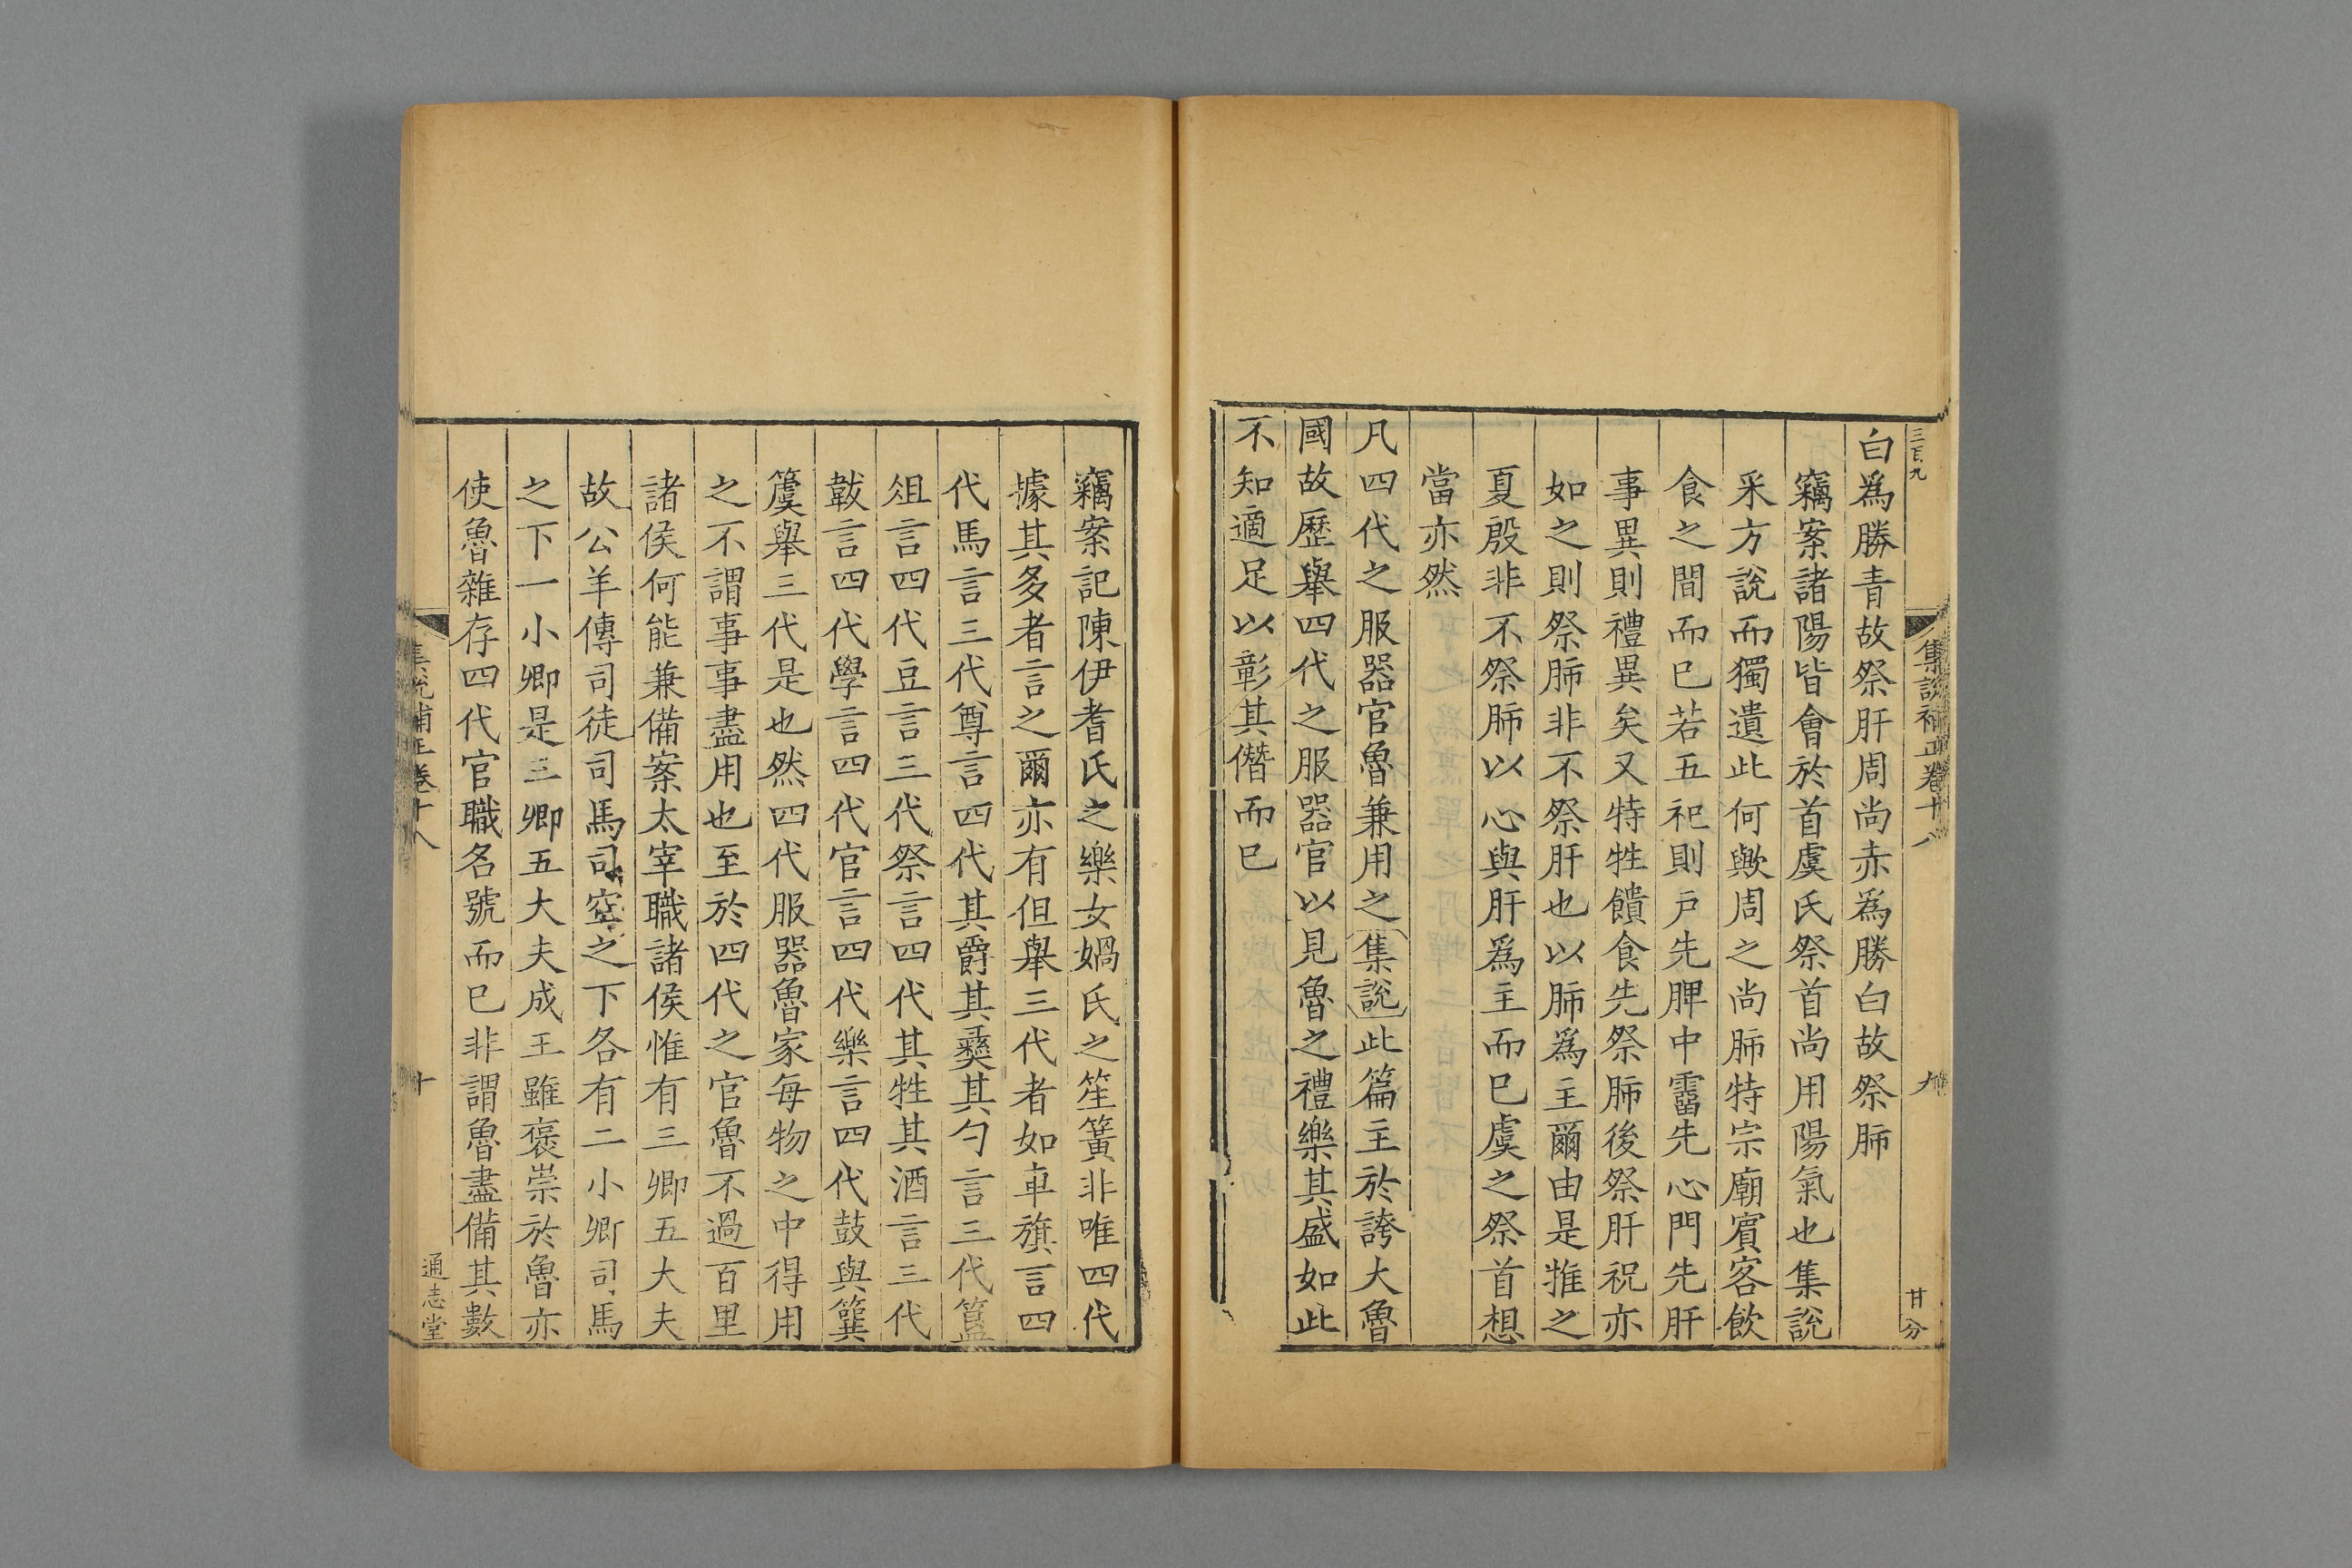 三百九
集說補正卷十八
九
廿分
白爲勝青故祭肝周尚赤爲勝白故祭肺
竊案諸陽皆會於首虞氏祭首尚用陽氣也集說
采方說而獨遺此何歟周之尚肺特宗廟賓客飲
食之間而已若五祀則戸先脾中霤先心門先肝
事異則禮異矣又特牲饋食先祭肺後祭肝祝亦
如之則祭肺非不祭肝也以肺爲主爾由是推之
夏殷非不祭肺以心與肝爲主而已虞之祭首想
當亦然
凡四代之服器官魯兼用之集說此篇主於誇大魯
國故歷舉四代之服器官以見魯之禮樂其盛如此
不知適足以彰其僭而已
竊案記陳伊耆氏之樂女媧氏之笙簧非唯四代
據其多者言之爾亦有但舉三代者如車旗言四
代馬言三代尊言四代其爵其彞其勺言三代簋
俎言四代豆言三代祭言四代其牲其酒言三代
韍言四代學言四代官言四代樂言四代鼓與簨
簴舉三代是也然四代服器魯家每物之中得用
之不謂事事盡用也至於四代之官魯不過百里
諸侯何能兼備案太宰職諸侯惟有三卿五大夫
故公羊傳司徒司馬司空之下各有二小卿司馬
之下一小卿是三卿五大夫成王雖褒崇於魯亦
使魯雜存四代官職名號而已非謂魯盡備其數
集說補正卷十八
十
通志堂